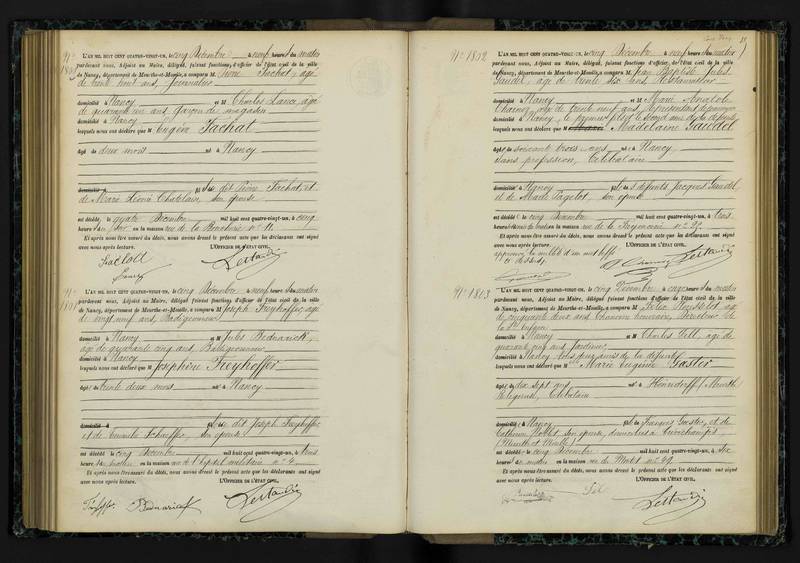 L'AN MIL HUIT CENT QUATRE-VINGT-UN, le cinq Décembre à neuf heures du matin
pardevant nous, Adjoint au Maire, délégué, faisant fonctions d'officier de l'état civil de la ville
de Nancy, département de Meurthe-et-Moselle, a comparu M Pierre Fachat, âgé
de trente huit ans, Journalier
domicilié à Nancy et M Charles Lancé, âgé
de quarante un ans, garçon de magasin
domicilié à Nancy
lesquels nous ont déclaré que M Eugénie Fachat
âgée de deux mois né à Nancy
domicilié à fille du dit Pierre Fachat, et
de Marie Léonie Chatelain, son épouse
est décédée, le quatre Décembre mil huit cent quatre-vingt-un, à cinq
heures du soir en la maison rue de n° 11
Et après nous être assuré du décès, nous avons dressé le présent acte que les déclarants ont signé
avec nous après lecture.
L'OFFICIER DE L'ÉTAT CIVIL,
L'AN MIL HUIT CENT QUATRE-VINGT-UN, le cinq Décembre à neuf heures du matin
pardevant nous, Adjoint au Maire, délégué faisant fonctions d'officier de l'état civil de la ville
de Nancy, département de Meurthe-et-Moselle, a comparu M Joseph Freyhoffer, âgé
de vingt neuf ans, Badigeonneur
domicilié à Nancy et M Jules Bednarick,
âgé de quarante cinq ans, Badigeonneur
domicilié à Nancy
lesquels nous ont déclaré que M Joséphine Freyhoffer
âgée de trente deux mois né à Nancy
domicilié à fille du dit Joseph Freyhoffer
et de Schaeffer, son épouse
est décédée le cinq Décembre mil huit cent quatre-vingt-un, à trois
heures du matin en la maison rue de l'hôpital militaire n° 4
Et après nous être assuré du décès, nous avons dressé le présent acte que les déclarants ont signé
avec nous après lecture.
L'OFFICIER DE L'ÉTAT CIVIL,
Bednarick
N° 1802
L'AN MIL HUIT CENT QUATRE-VINGT-UN, le cinq Décembre à neuf heures du matin
pardevant nous, Adjoint au Maire, délégué, faisant fonctions d'officier de l'état civil de la ville
de Nancy, département de Meurthe-et-Moselle, a comparu M Jean Baptiste Jules
Gaudel, âgé de trente six ans
domicilié à Nancy et M Marie Anatole
âgé de trente neuf ans, Représentant de commerce
domicilié à Nancy, le premier neveu le second ami de la défunte
lesquels nous ont déclaré que M Madelaine Gaudel
âgée de soixante trois ans née à Nancy
sans profession, Célibataire
domiciliée à Nancy fille de défunts Jacques Gaudel
et de Marie Pagelot, son épouse
est décédée le cinq Décembre mil huit cent quatre-vingt-un, à trois
heures du matin en la maison rue de la n° 29
Et après nous être assuré du décès, nous avons dressé le présent acte que les déclarants ont signé
avec nous après lecture.
L'OFFICIER DE L'ÉTAT CIVIL,
N° 1803
L'AN MIL HUIT CENT QUATRE-VINGT-UN, le cinq Décembre à onze heures du matin
pardevant nous, Adjoint au Maire, délégué, faisant fonctions d'officier de l'état civil de la ville
de Nancy, département de Meurthe-et-Moselle, a comparu M Félix âgé
de cinquante deux ans, Chanoine honoraire, Directeur de
la Ste Enfance
domicilié à Nancy et M Charles Sell, âgé de
quarante cinq ans Jardinier
domicilié à Nancy tous deux amis de la défunte
lesquels nous ont déclaré que M Marie Eugénie Gaster
âgée de dix sept ans née à (Meurthe)
Religieuse, Célibataire
domiciliée à Nancy fille de François Gaster, et de
Catherine son épouse, domiciliés à
(Meurthe et Moselle)
est décédée le cinq Décembre mil huit cent quatre-vingt-un, à six
heures du matin en la maison rue de n° 49
Et après nous être assuré du décès, nous avons dressé le présent acte que les déclarants ont signé
avec nous après lecture.
L'OFFICIER DE L'ÉTAT CIVIL,